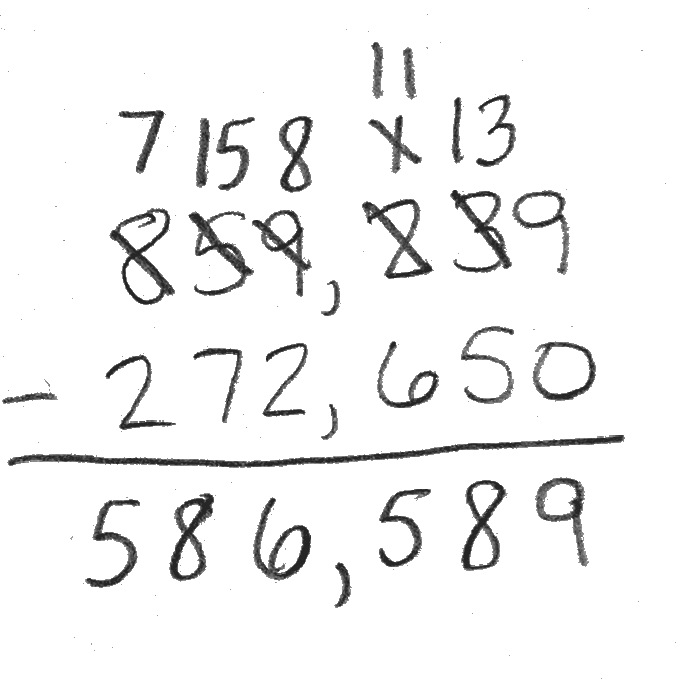 11
7 15 8 1 13
859,239
- 272,650
586,589